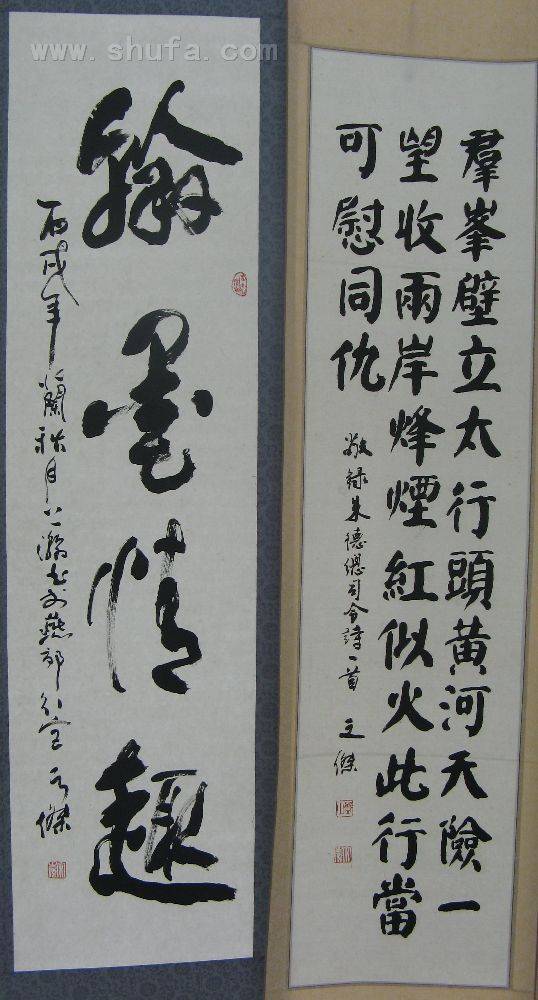 www.shufa.com
羣峯壁立太行頭黄河天險一
望收兩岸烽煙紅似火此行當
可慰同仇
敬録朱德總司令詩一首 之傑
翰墨情趣
丙戌年蘭秋月上澣書於燕郊 之傑